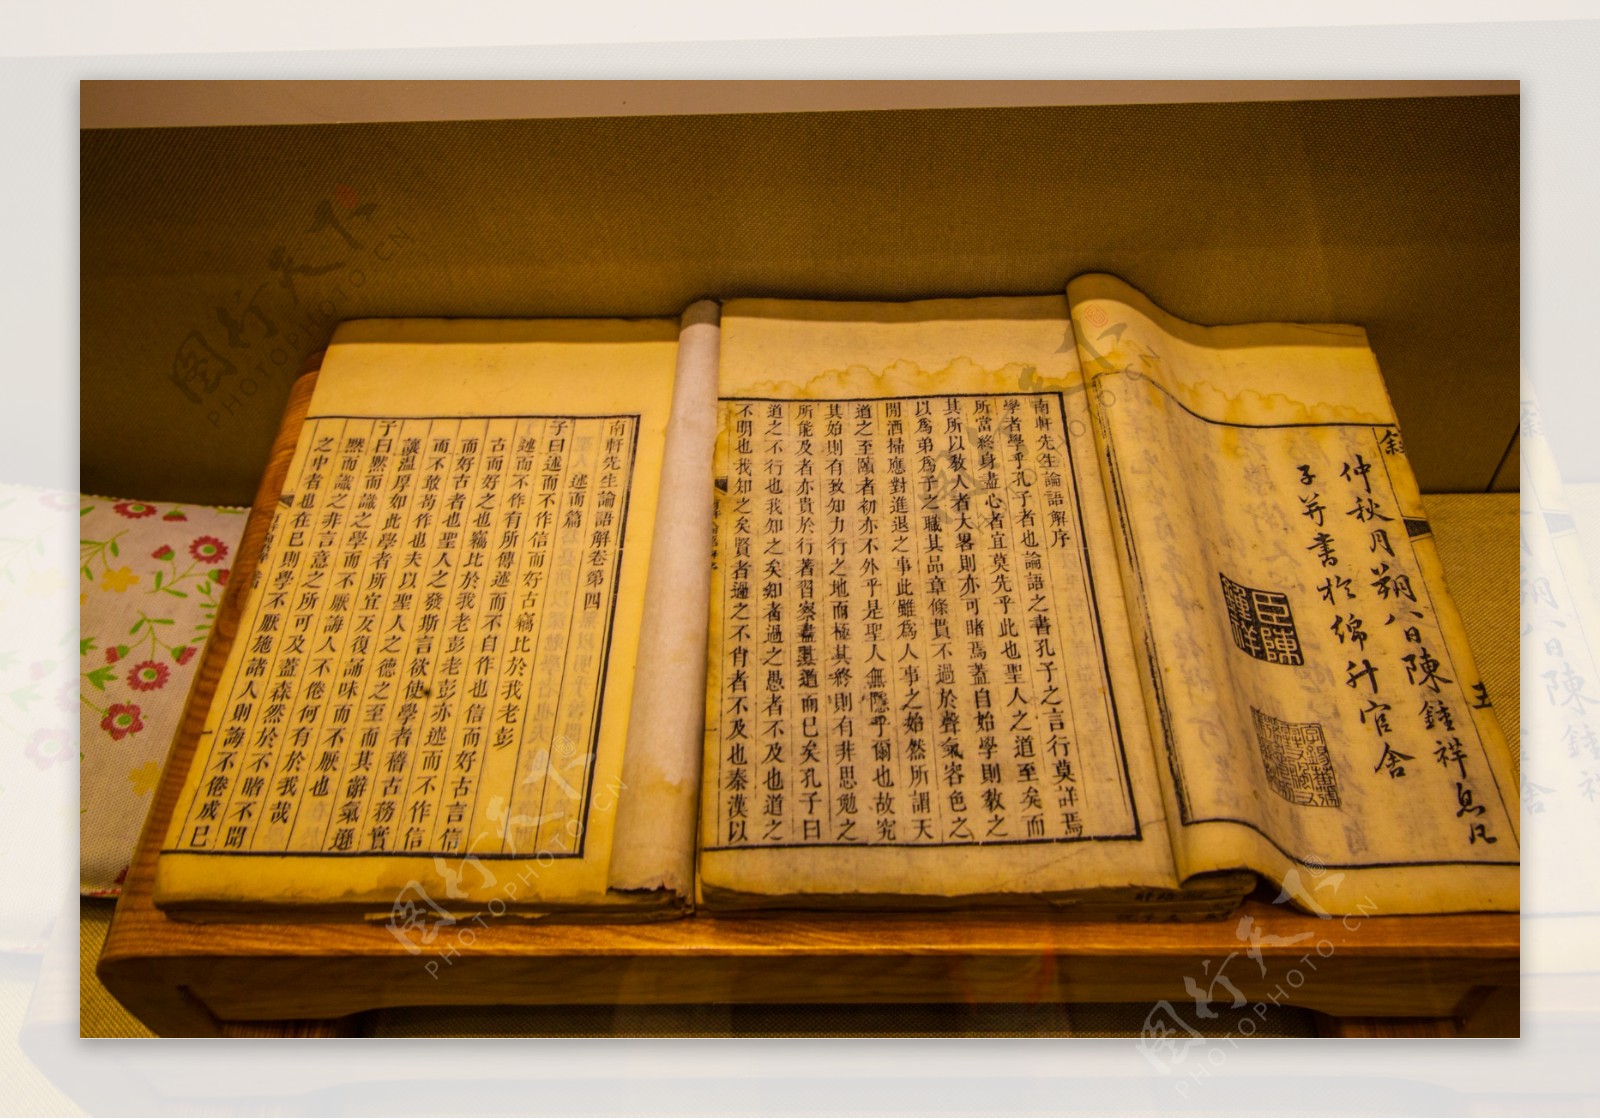 敘
仲秋月朔八日陳鍾祥息凡
子并書於綿竹官舍
臣陳鍾祥
南軒先生論語解序
學者學乎孔子者也論語之書孔子之言行莫詳焉
所當終身盡心者宜莫先乎此也聖人之道至矣而
其所以敎人者大畧則亦可睹焉蓋自始學則敎之
以爲弟爲子之職其品章條貫不過於聲氣容色之
閒洒掃應對進退之事此雖爲人事之始然所謂天
道之至賾者初亦不外乎是聖人無隱乎爾也故究
其始則有致知力行之地而極其終則有非思勉之
所能及者亦貴於行著習察盡其道而已矣孔子曰
道之不行也我知之矣知者過之愚者不及也道之
不明也我知之矣賢者過之不肖者不及也秦漢以
南軒先生論語解卷第四
述而篇
子曰述而不作信而好古竊比於我老彭
述而不作有所傳述而不自作也信而好古言信
古而好之也竊比於我老彭老彭亦述而不作信
而好古者也聖人之發斯言欲使學者稽古務實
而不敢苟作也夫以聖人之德之至而其辭氣遜
讓温厚如此學者所宜反復誦味而不厭也
子曰默而識之學而不厭誨人不倦何有於我哉
默而識之非言意之所可及蓋森然於不睹不聞
之中者也在已則學不厭施諸人則誨不倦成已
图行天下
PHOTOPHOTO.CN
图行天下
PHOTOPHOTO.CN
图行天下
PHOTOPHOTO.CN